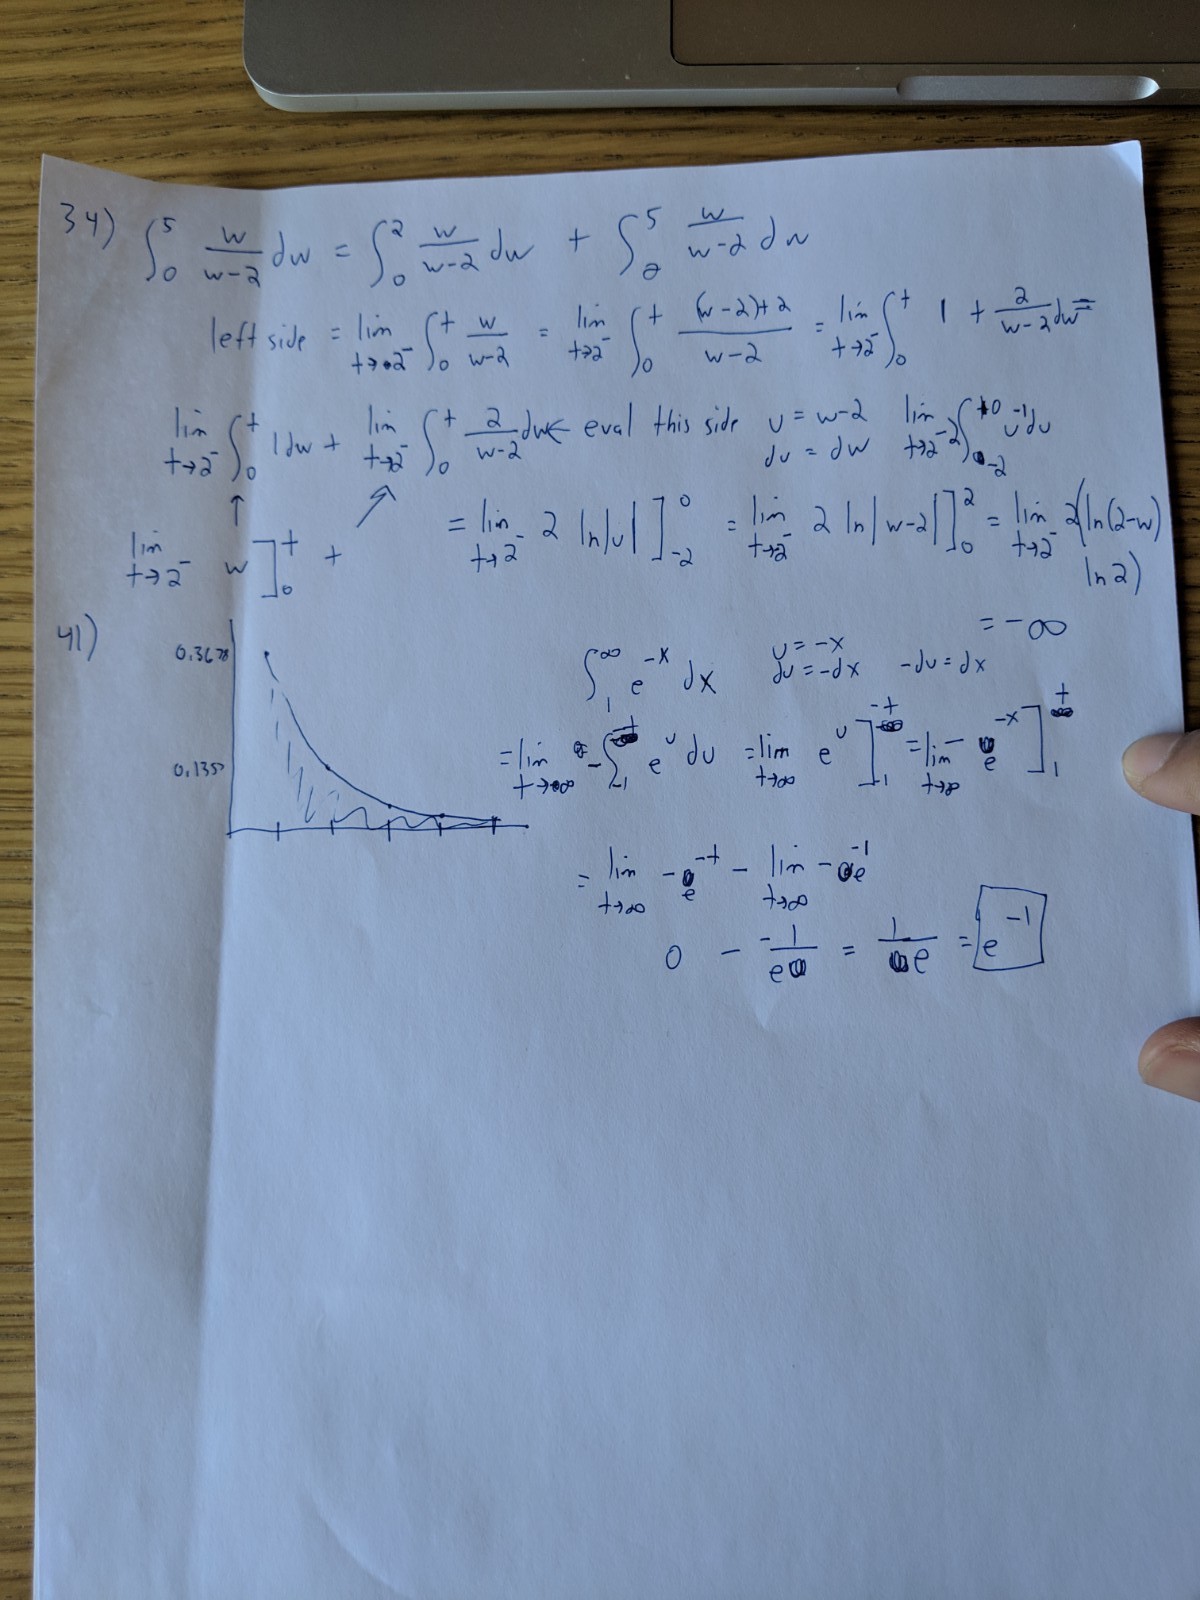 34) ∫₀⁵ w/(w-2) dw = ∫₀² w/(w-2) dw + ∫₂⁵ w/(w-2) dw
left side = lim t→2⁻ ∫₀ᵗ w/(w-2) = lim t→2⁻ ∫₀ᵗ ((w-2)+2)/(w-2) = lim t→2⁻ ∫₀ᵗ 1 + 2/(w-2) dw =
lim t→2⁻ ∫₀ᵗ 1dw + lim t→2⁻ ∫₀ᵗ 2/(w-2) dw ← eval this side u = w-2 du = dw lim t→2⁻ 2∫₋₂⁰ u⁻¹ du
↑ ↗ = lim t→2⁻ 2 ln|u| ]₋₂⁰ = lim t→2⁻ 2 ln|w-2| ]₀² = lim t→2⁻ 2(ln(2-w)
lim t→2⁻ w ]₀ᵗ + ln 2)
= -∞
41)
0.3678
0.135
∫₁^∞ e⁻ˣ dx u = -x du = -dx -du = dx
= lim t→∞ -∫₋₁⁻ᵗ eᵘ du = lim t→∞ eᵘ ]₋₁⁻ᵗ = lim t→∞ - e⁻ˣ ]₁ᵗ
= lim t→∞ -e⁻ᵗ - lim t→∞ -e⁻¹
0 - -1/e = 1/e = e⁻¹